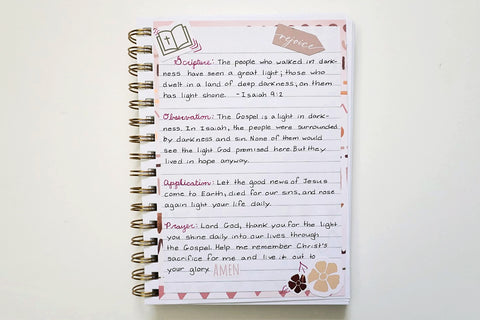 rejoice
Scripture: The people who walked in dark-
ness have seen a great light; those who
dwelt in a land of deep darkness, on them
has light shone. -Isaiah 9:2
Observation: The Gospel is a light in dark-
ness. In Isaiah, the people were surrounded
by darkness and sin. None of them would
see the light God promised here. But they
lived in hope anyway.
Application: Let the good news of Jesus
come to Earth, died for our sins, and rose
again light your life daily.
Prayer: Lord God, thank you for the light
you shine daily into our lives through
the Gospel. Help me remember Christ's
sacrifice for me and live it out to
your glory. AMEN